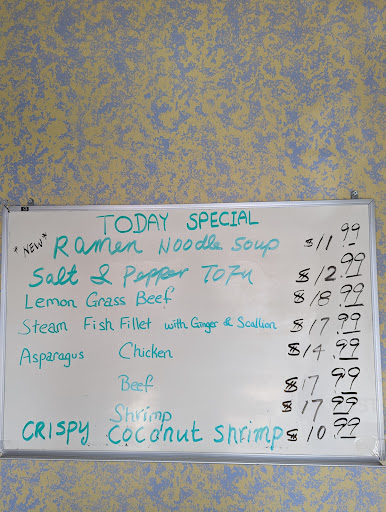 TODAY SPECIAL
*NEW* Ramen Noodle Soup $11.99
Salt & Pepper Tofu $12.99
Lemon Grass Beef $18.99
Steam Fish Fillet with Ginger & Scallion $17.99
Asparagus Chicken $14.99
Beef $17.99
Shrimp $17.99
CRISPY Coconut Shrimp $10.99